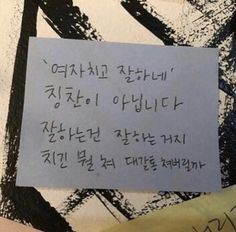 '여자치고 잘하네'
칭찬이 아닙니다
잘하는건 잘하는 거지
치긴 뭘 쳐 대갈통 쳐버릴까